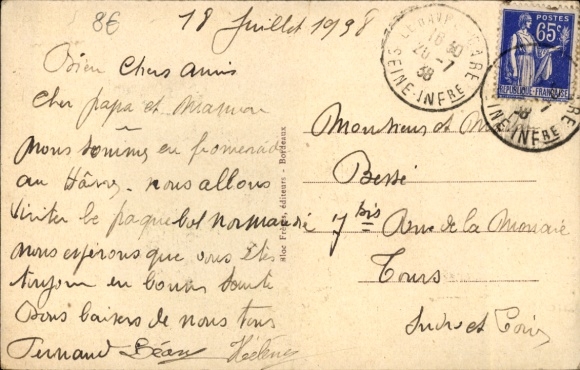 8E
18 Juillet 1938
Bien Chers Amis
Cher papa et Maman
Nous sommes en promenade
au Hâvre. nous allons
visiter le paquebot normandie
nous espérons que vous êtes
toujours en bonne santé
Bons baisers de nous tous
Fernand Léon Hélène
Bloc Frères, éditeurs - Bordeaux
Monsieur et
Bessé
7 bis Rue de la Monnaie
Tours
Indre et Loire
LE HAVRE GARE
18 30
20 -7
38
SEINE-INFRE
POSTES
65c
REPUBLIQUE-FRANÇAISE
SEINE-INFRE